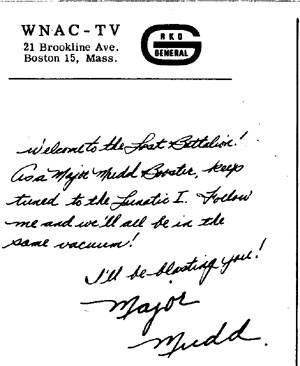 WNAC-TV
21 Brookline Ave.
Boston 15, Mass.
RKO
GENERAL
Welcome to the Lost Battalion!
As a Major Mudd Booster, keep
tuned to the Lunatic I. Follow
me and we'll all be in the
same vacuum!
I'll be blasting you!
Major
Mudd.